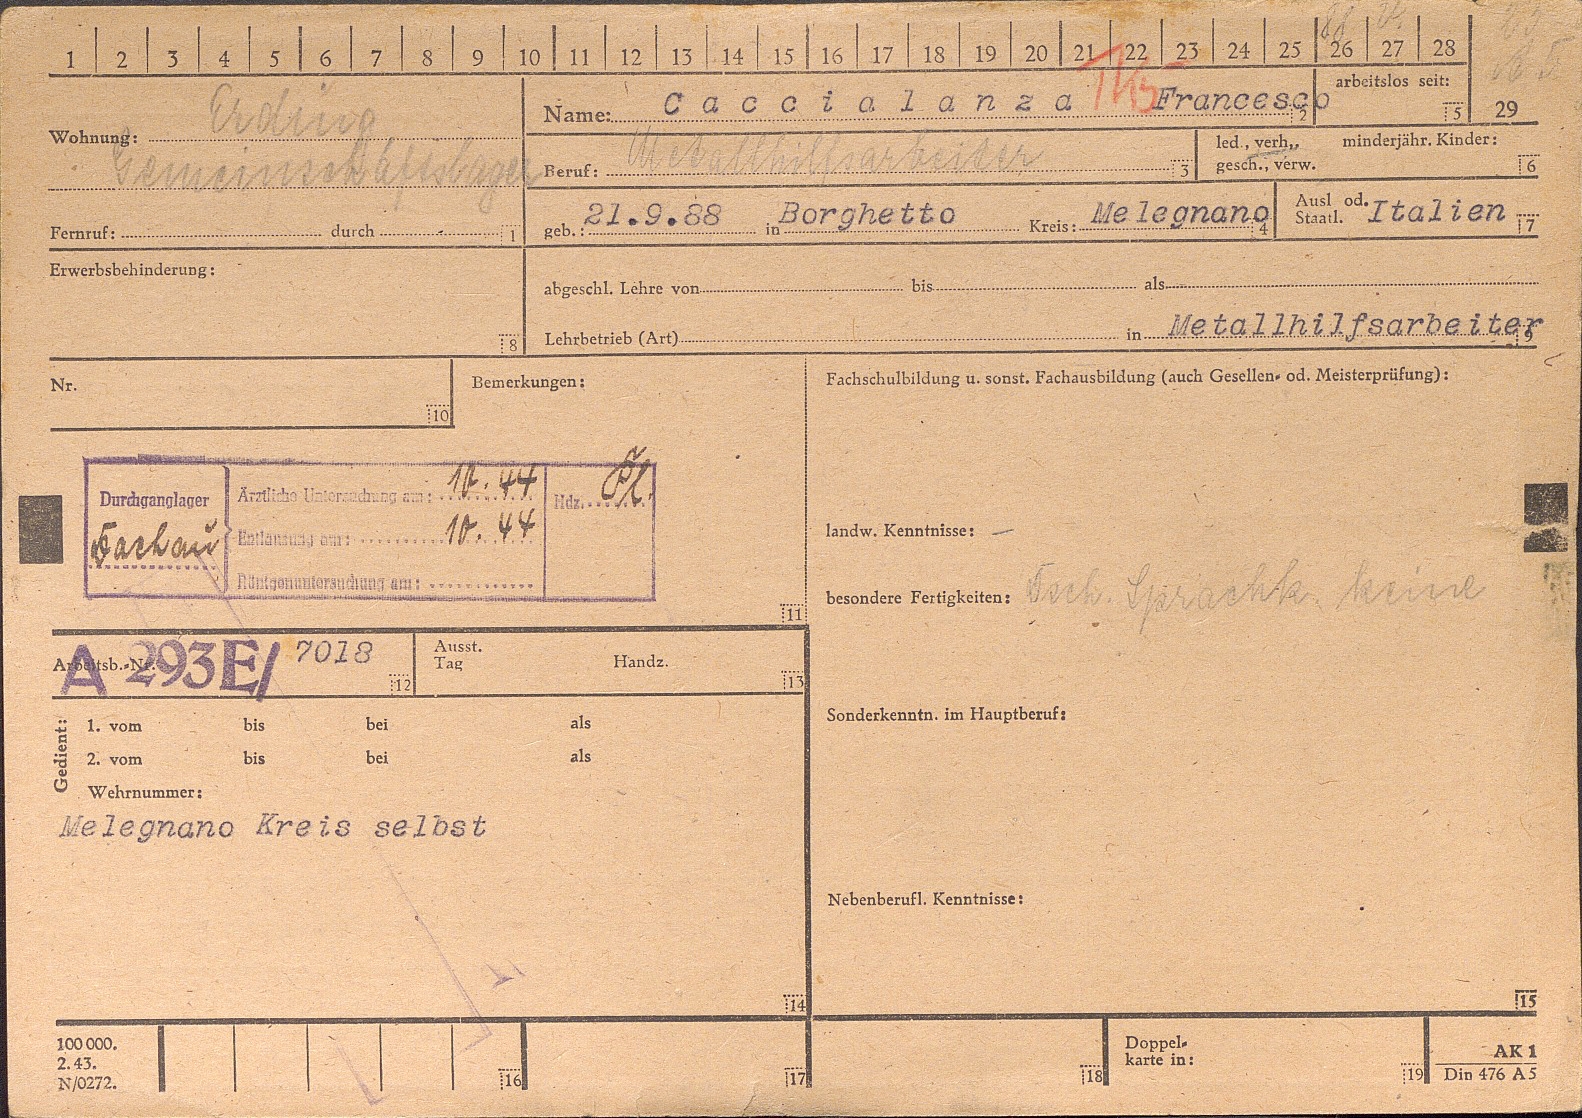 1 2 3 4 5 6 7 8 9 10 11 12 13 14 15 16 17 18 19 20 21 22 23 24 25 26 27 28
29
Wohnung: Erding
Gemeinschaftslager
Fernruf: durch 1
Name: Caccialanza Francesco 2
arbeitslos seit: 5
Beruf: Metallhilfsarbeiter 3
led., verh., minderjähr. Kinder:
gesch., verw. 6
geb.: 21.9.88 in Borghetto Kreis: Melegnano 4
Ausl od.
Staatl. Italien 7
Erwerbsbehinderung:
8
abgeschl. Lehre von bis als
Lehrbetrieb (Art) in Metallhilfsarbeiter 9
Nr.
10
Bemerkungen:
Durchganglager
Dachau
Ärztliche Untersuchung am: 10.44
Entlausung am: 10.44
Röntgenuntersuchung am:
Hdz.
11
Arbeitsb.-Nr. A 293E/ 7018 12
Ausst.
Tag Handz. 13
Gedient:
1. vom bis bei als
2. vom bis bei als
Wehrnummer:
Melegnano Kreis selbst
14
Fachschulbildung u. sonst. Fachausbildung (auch Gesellen- od. Meisterprüfung):
landw. Kenntnisse: —
besondere Fertigkeiten: Dsch. Sprachk. keine
Sonderkenntn. im Hauptberuf:
Nebenberufl. Kenntnisse:
15
100 000.
2. 43.
N/0272.
16
17
18
Doppel-
karte in: 19
AK 1
Din 476 A 5